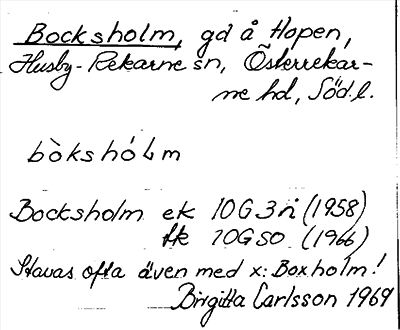 Bocksholm, gd å Hopen,
Husby-Rekarne sn, Österrekar-
ne hd, Söd.l.
bòkshólm
Bocksholm ek 10G3ñ (1958)
fk 10GSO (1966)
Stavas ofta även med x: Boxholm!
Birgitta Carlsson 1969